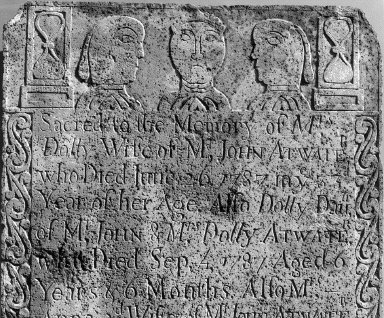 Sacred to the Memory of Mrs
Dolly Wife of Mr John Atwater
who Died June 26 1787 in
Year of her Age Also Dolly Dau
of Mr John & Mrs Dolly Atwater
who Died Sep. 4 1787 Aged 6
Years & 6 Months. Also Mrs
Wife of Mr John Atwater